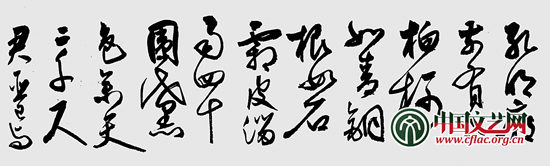 孔明廟
前有老
柏柯
如青銅
根如石
霜皮溜
雨四十
圍黛
色參天
二千尺
君臣已与
中国文艺网
www.cflac.org.cn